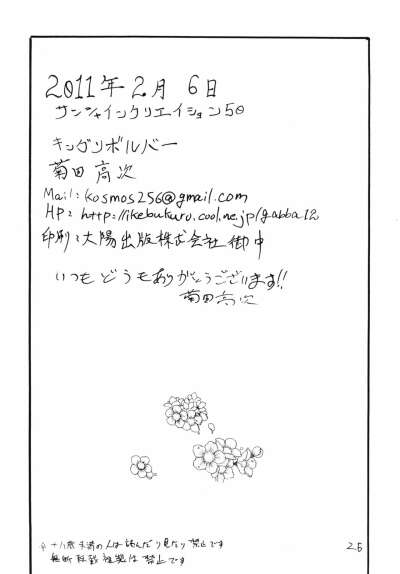 2011年 2月 6日
サンシャインクリエイション50
キングリボルバー
菊田 高次
Mail: kosmos256@gmail.com
HP: http://ikebukuro.cool.ne.jp/gabba12
印刷: 大陽出版株式会社 御中
いつもどうもありがとうございます!!
菊田高次
※ 十八歳未満の人は読んだり見たり禁止です
無断転載 複製は禁止です
26